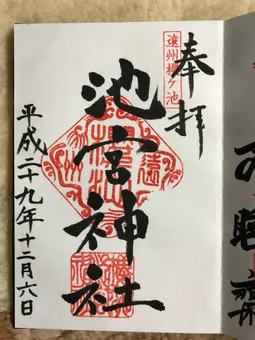 奉拝
遠州桜ヶ池
池宮神社
平成二十九年十二月六日